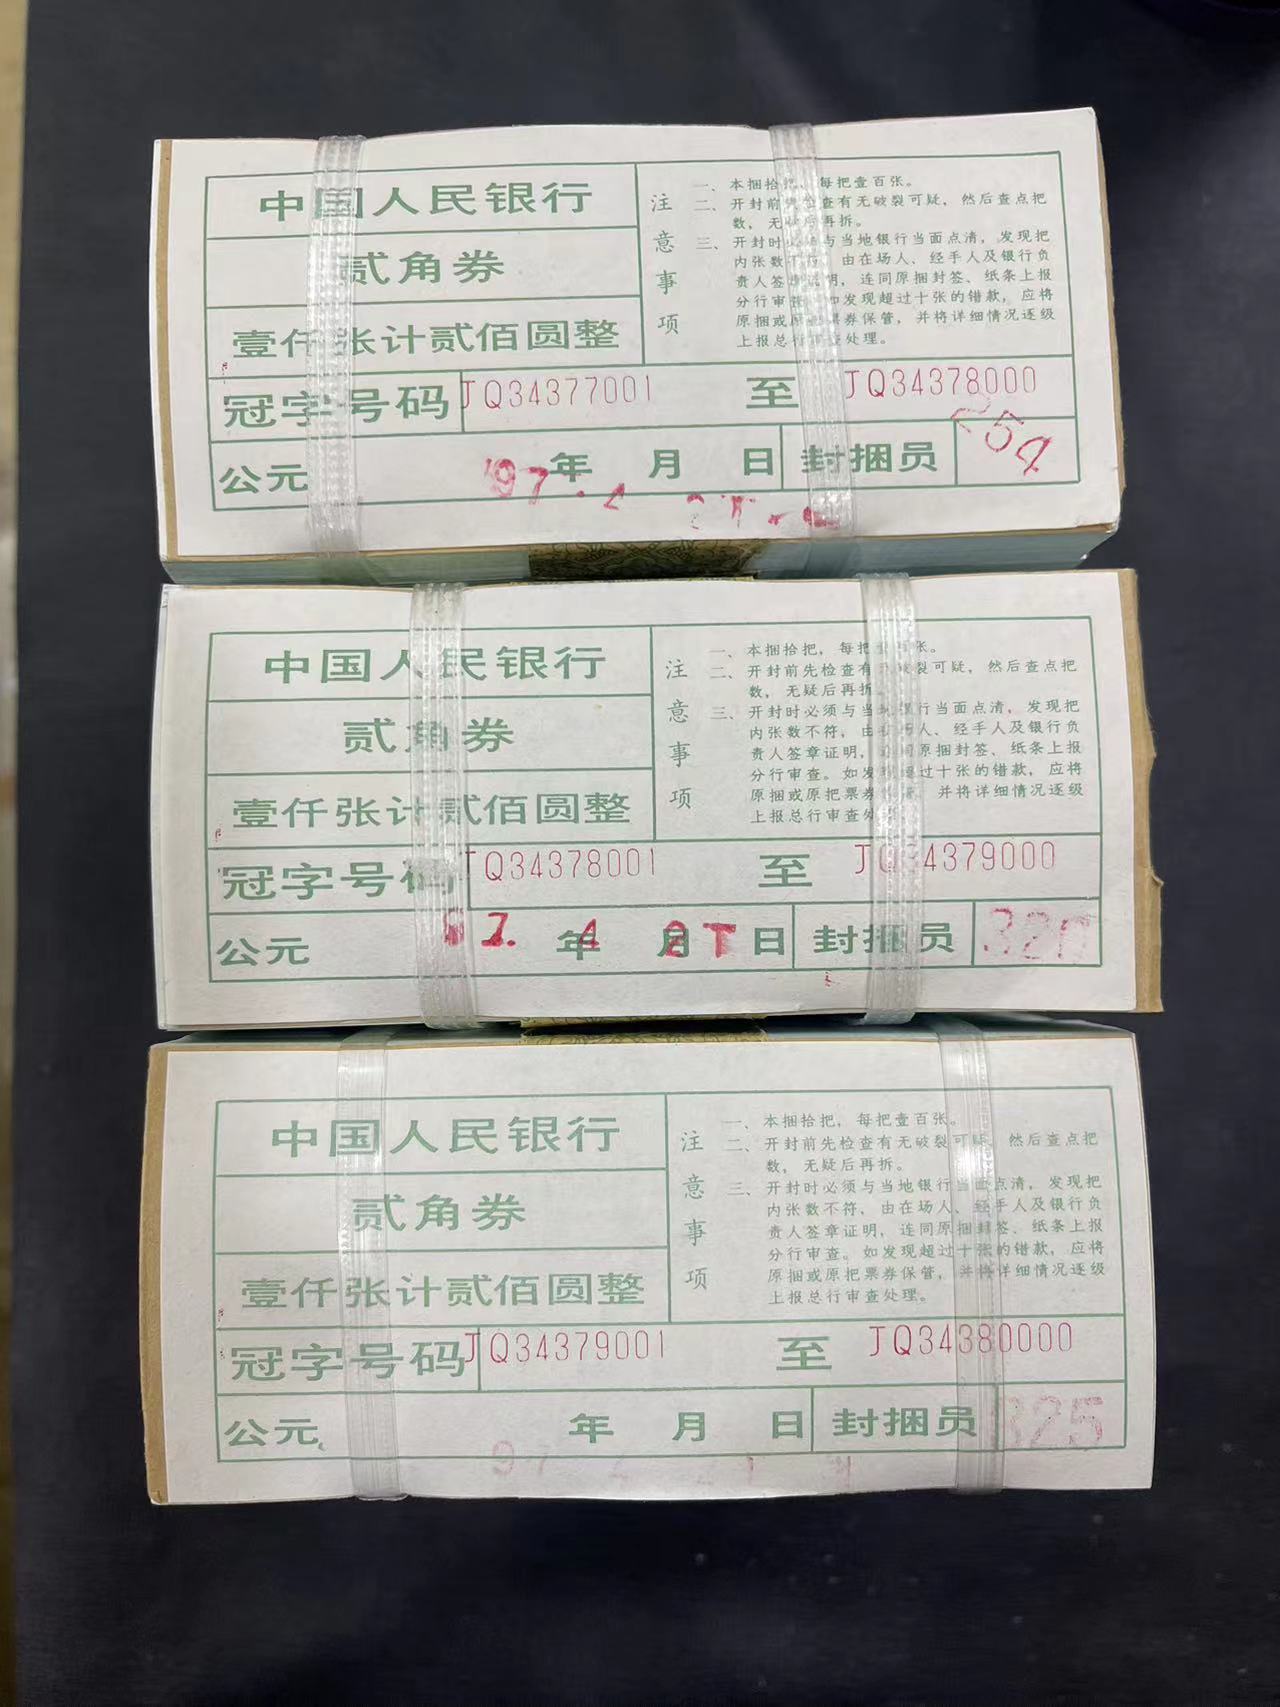 中国人民银行
贰角券
壹仟张计贰佰圆整
注意事项
一、本捆拾把，每把壹百张。
二、开封前先检查有无破裂可疑，然后查点把
数，无疑后再拆。
三、开封时必须与当地银行当面点清，发现把
内张数不符，由在场人、经手人及银行负
责人签章说明，连同原捆封签、纸条上报
分行审查。如发现超过十张的错款，应将
原捆或原把票券保管，并将详细情况逐级
上报总行审查处理。
冠字号码 JQ34377001 至 JQ34378000
公元 97 年 月 日 封捆员
中国人民银行
贰角券
壹仟张计贰佰圆整
注意事项
一、本捆拾把，每把壹百张。
二、开封前先检查有无破裂可疑，然后查点把
数，无疑后再拆。
三、开封时必须与当地银行当面点清，发现把
内张数不符，由在场人、经手人及银行负
责人签章证明，连同原捆封签、纸条上报
分行审查。如发现超过十张的错款，应将
原捆或原把票券保管，并将详细情况逐级
上报总行审查处理。
冠字号码 JQ34378001 至 JQ34379000
公元 97. 年 4 月 日 封捆员
中国人民银行
贰角券
壹仟张计贰佰圆整
注意事项
一、本捆拾把，每把壹百张。
二、开封前先检查有无破裂可疑，然后查点把
数，无疑后再拆。
三、开封时必须与当地银行当面点清，发现把
内张数不符，由在场人、经手人及银行负
责人签章证明，连同原捆封签、纸条上报
分行审查。如发现超过十张的错款，应将
原捆或原把票券保管，并将详细情况逐级
上报总行审查处理。
冠字号码 JQ34379001 至 JQ34380000
公元 年 月 日 封捆员 325